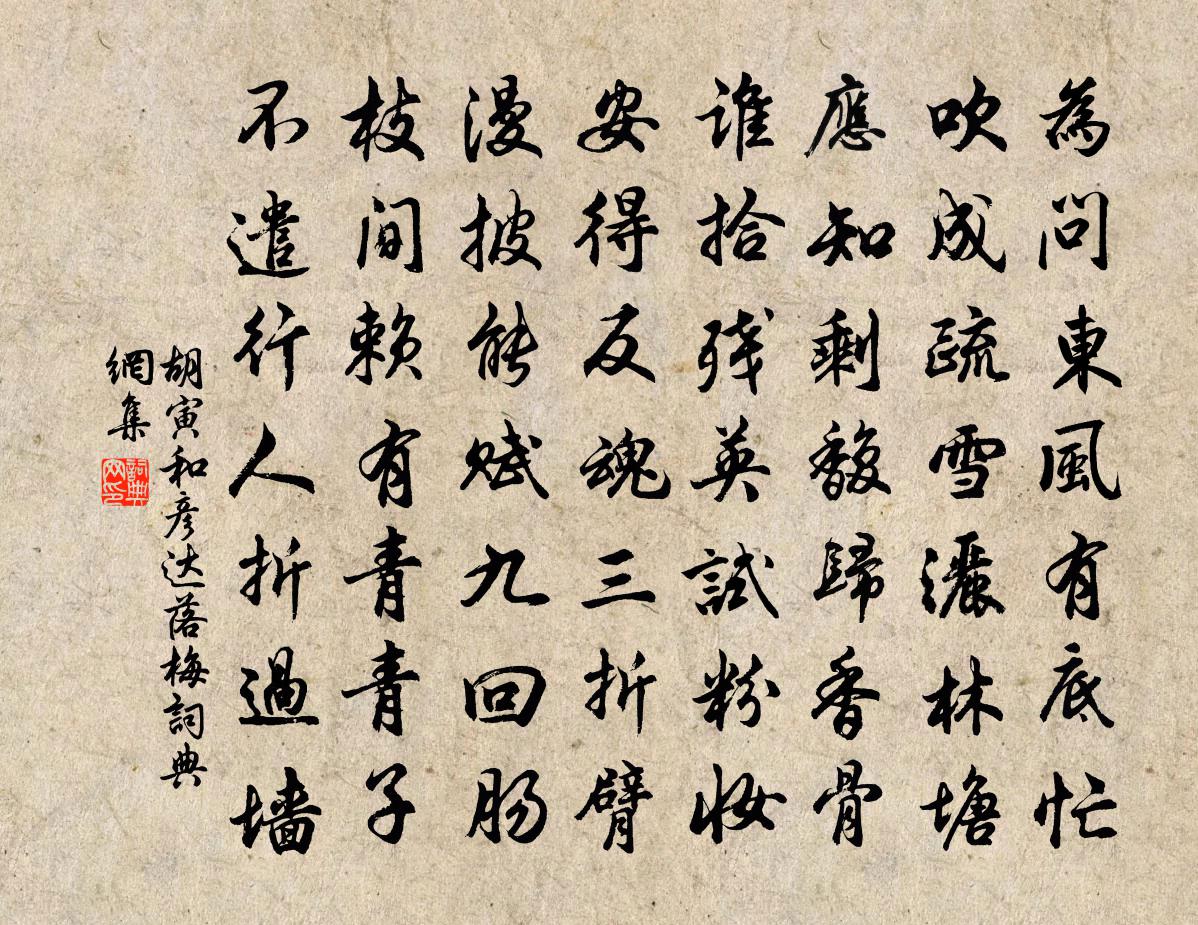 為問東風有底忙
吹成疏雪灑林塘
應知剩馥歸香骨
誰拾残英試粉妝
安得反魂三折臂
漫披能赋九回肠
枝间赖有青青子
不遣行人折過墙
胡寅和彦达落梅詞典
網集
詞典
网印